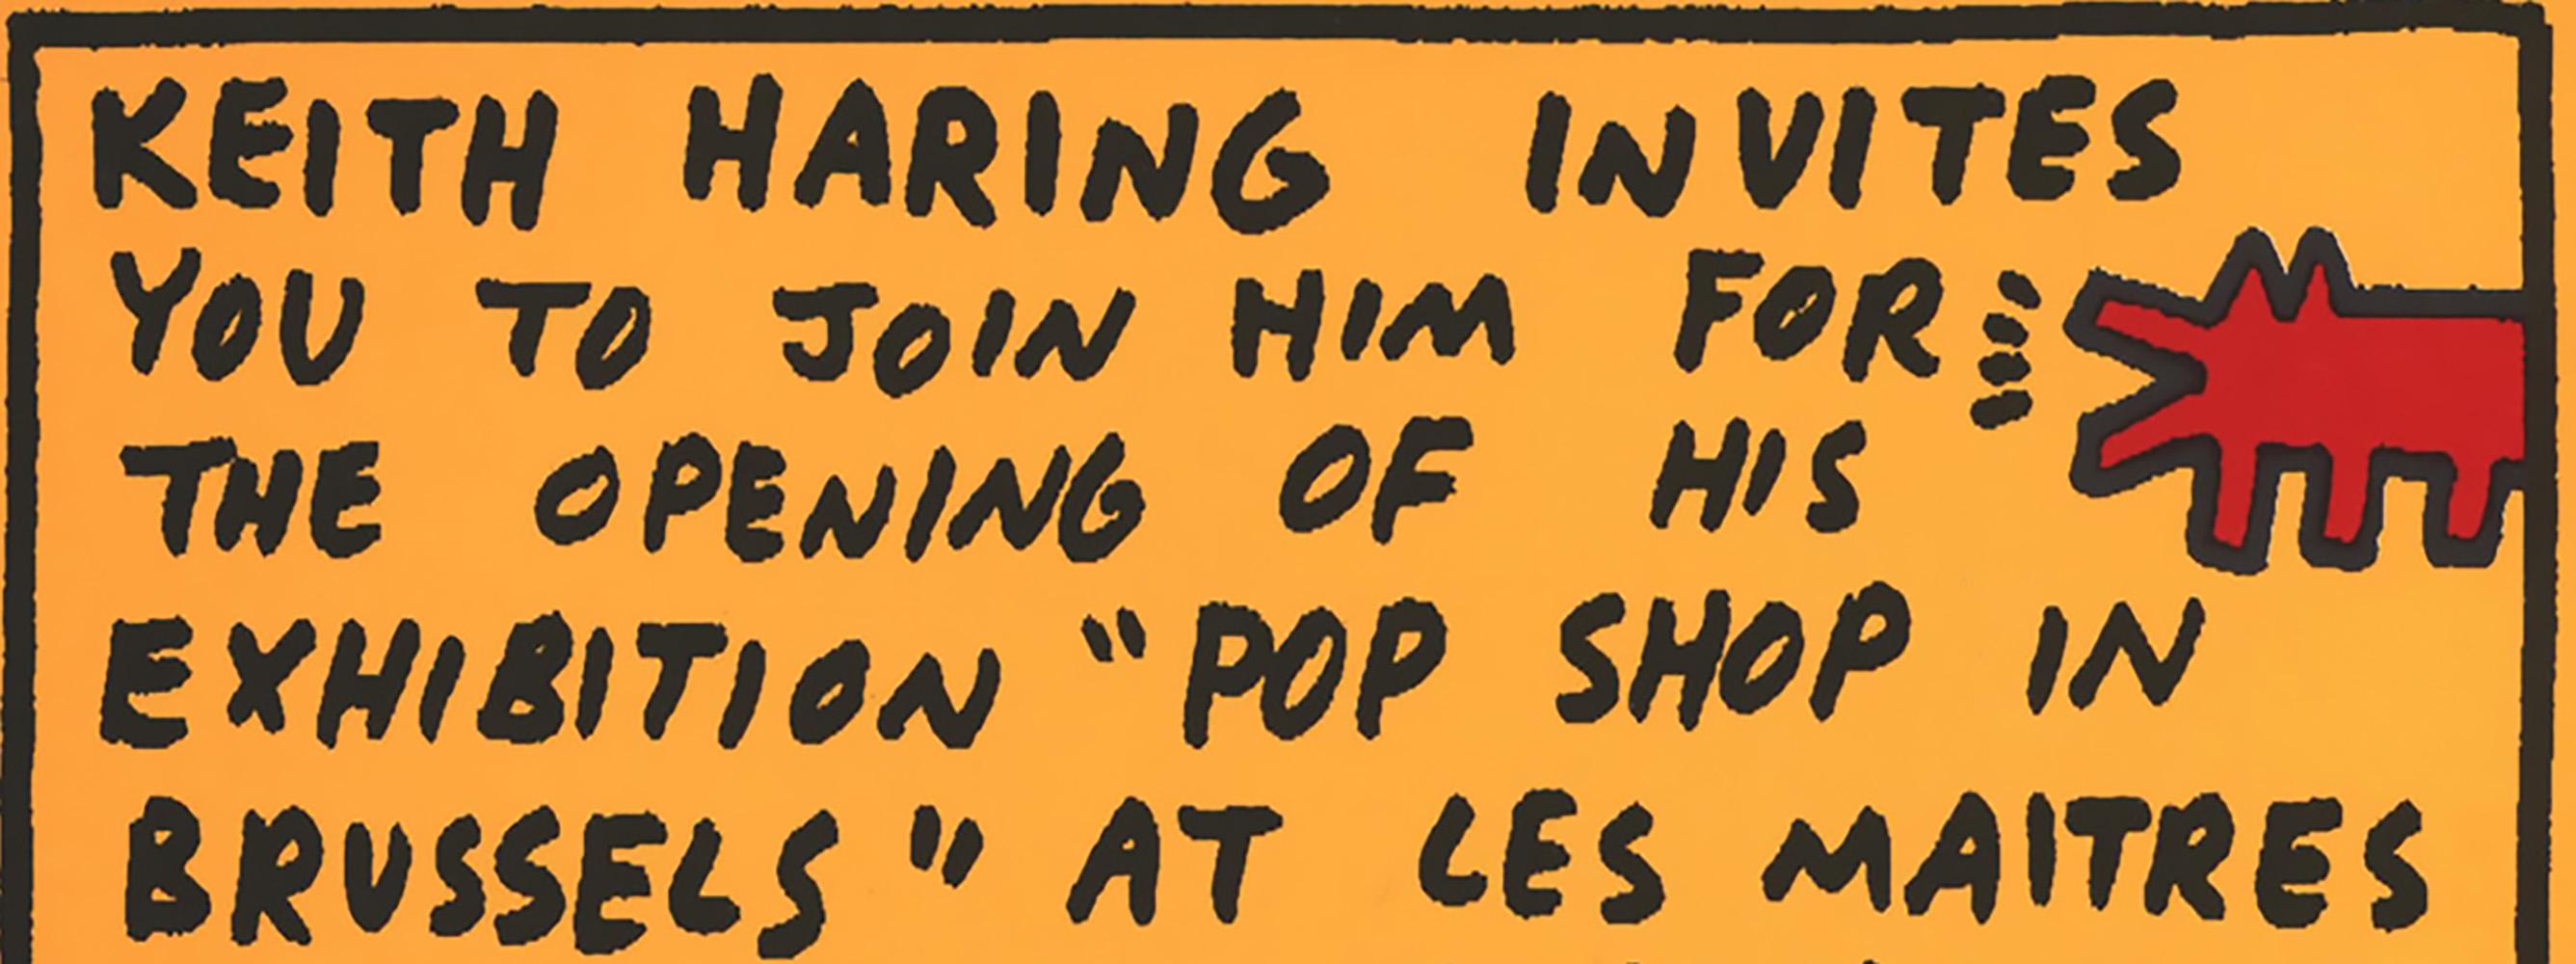 KEITH HARING INVITES
YOU TO JOIN HIM FOR
THE OPENING OF HIS
EXHIBITION "POP SHOP IN
BRUSSELS" AT LES MAITRES